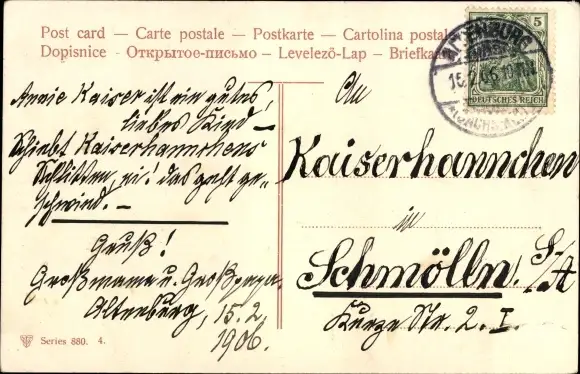 Post card — Carte postale — Postkarte — Cartolina postale
Dopisnice - Открытое-письмо - Levelező-Lap - Briefkaart
5
DEUTSCHES REICH
ALTENBURG
15.
Annie Kaiser ist ein gutes,
liebes Kind —
Schiebt Kaiserhannchens
Schlitten, ei! das geht ge-
schwind. —
Gruß!
Großmama u. Großpapa.
Altenburg, 15.2.
1906.
An
Kaiserhannchen
in
Schmölln. S/A
Kurze Str. 2. I.
Series 880. 4.